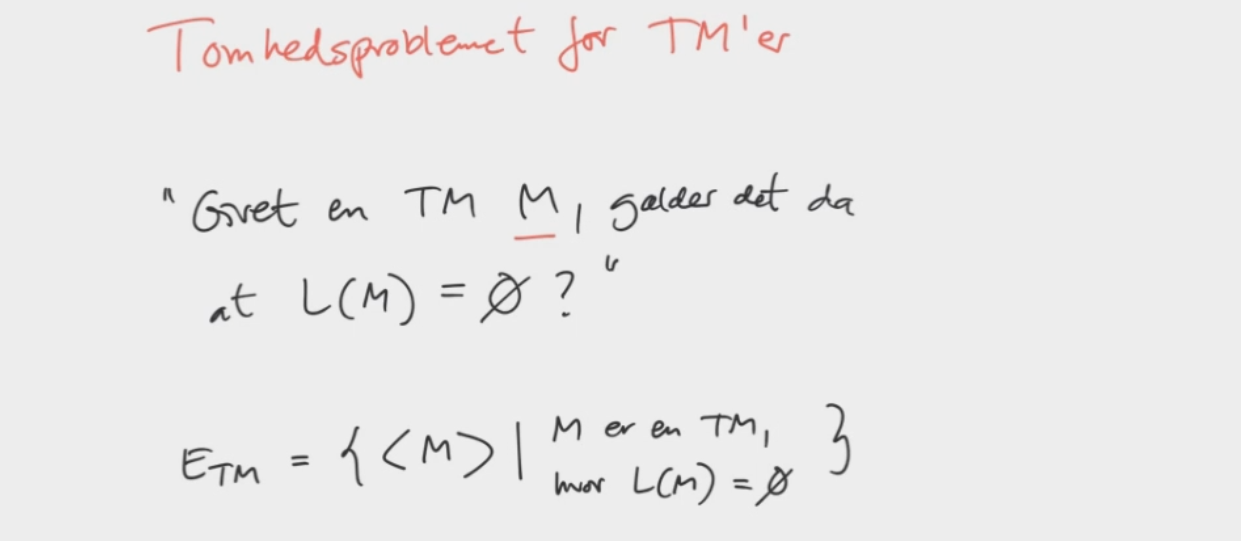 Tomhedsproblemet for TM'er
"Givet en TM M, gælder det da
at L(M) = Ø ?"
E_TM = { <M> | M er en TM,
hvor L(M) = Ø }